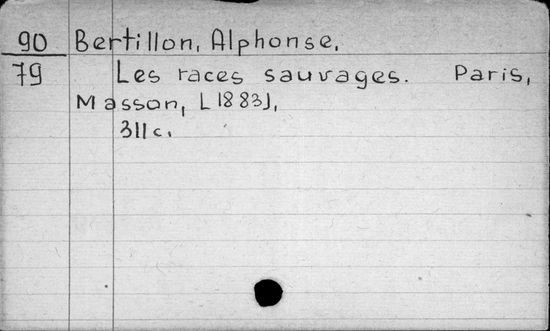 90 Bertillon, Alphonse.
79 Les races sauvages. Paris,
Masson, [1883],
311 c.